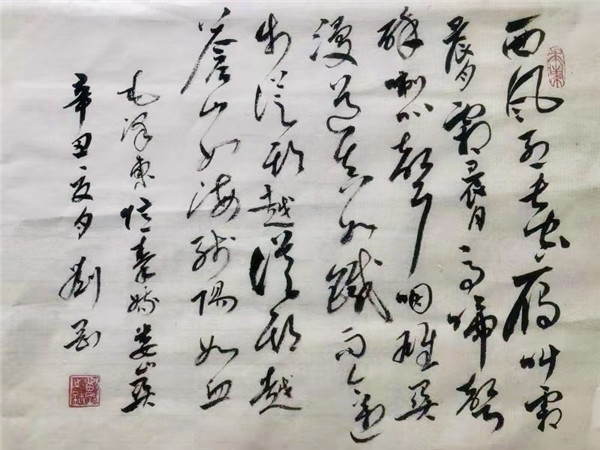 西风烈长空雁叫霜
晨月霜晨月马蹄聲
碎喇叭声咽雄关
漫道真如鐵而今迈
步从头越从头越
蒼山如海残阳如血
毛泽東忆秦娥娄山关
辛丑夏月刘